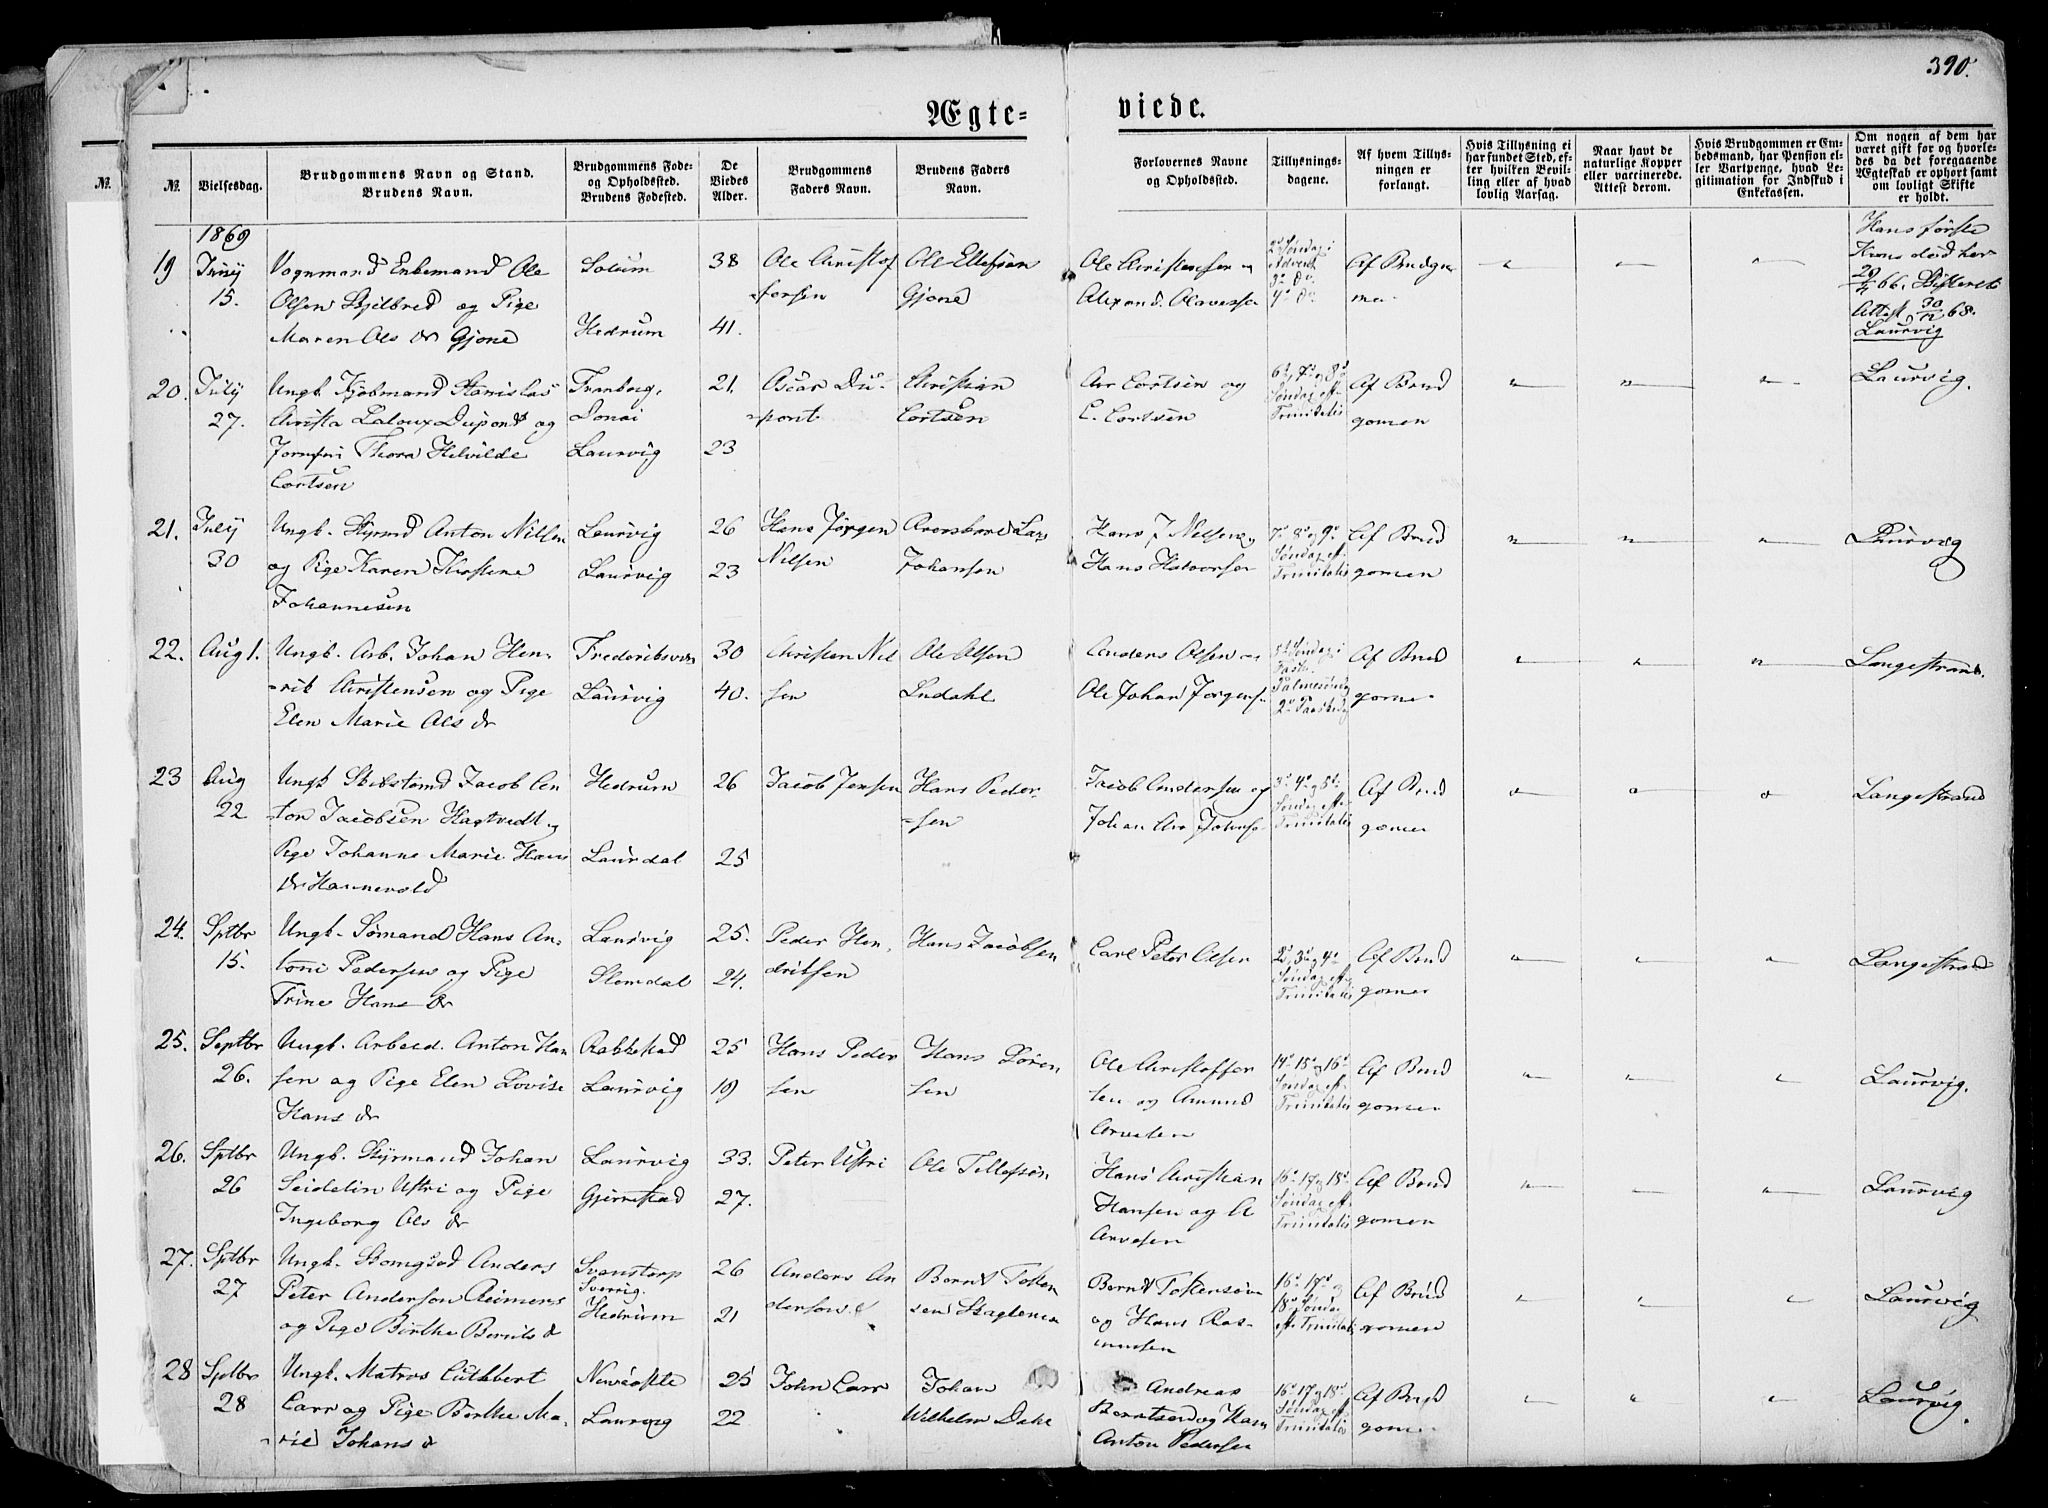 390.
Ægte-
viede.
№.
№.
Vielsesdag.
Brudgommens Navn og Stand.
Brudens Navn.
Brudgommens Føde-
og Opholdssted.
Brudens Fødested.
De
Viedes
Alder.
Brudgommens
Faders Navn.
Brudens Faders
Navn.
Forlovernes Navne
og Opholdssted.
Tillysnings-
dagene.
Af hvem Tillys-
ningen er
forlangt.
Hvis Tillysning ei
har fundet Sted, ef-
ter hvilken Bevil-
ling eller af hvad
lovlig Aarsag.
Naar havt de
naturlige Kopper
eller vaccinerede.
Attest derom.
Hvis Brudgommen er Em-
bedsmand, har Pension el-
ler Vartpenge, hvad Le-
gitimation for Indskud i
Enkekassen.
Om nogen af dem har
været gift før og hvorle-
des da det foregaaende
Ægteskab er ophørt samt
om lovligt Skifte
er holdt.
1869
19
15.
Vognmand Enkemand Ole
Olsen Hjelbred og Pige
Maren Ols dr Gjone
Solum
Hedrum
38
41.
Ole Christof
fersen
Ole Ellefsen
Gjone
Ole Christensen og
2d Søndag i
Advent
3d Do
4d Do
Af Brudgom
men
Hans første
Kone død her
29/4 66. Skifteret
Attest 30/12 68.
Laurvig
20.
July
27.
Ungk. Kjøbmand Stanislas
Christa Laloux Dupont og
Jomfru Thora Helvilde
Cortsen
Frankrig,
Douai
Laurvig
21.
23
Oscar Du-
pont
Christian
Cortsen
Chr Cortsen og
C. Cortsen
6d, 7d og 8d
Søndag eft
Trinitatis
Af Brud
gomen
Laurvig.
21.
July
30
Ungk. Styrmd Anton Nilsen
og Pige Karen Thrstine
Johannesen
Laurvig
Laurvig
26
23
Hans Jørgen
Nilsen
Lars
Johansen
Hans J Nilsen og
Hans Halvorsen
7d 8d og 9d
Søndag eft
Trinitatis
Af Brud
gomen
Laurvig
22.
Aug 1.
Ungk. Arb. Johan Hen-
rik Christensen og Pige
Elen Marie Ols dr
Frederiksværn
Laurvig
30
40.
Christen Nil
sen
Ole Olsen
Lndahl
Anders Olsen og
Ole Johan Jørgens.
Søndag i
Faste
Palmesøndag
2d Paaskedag
Af Brud
gomen
Langestrand.
23
Aug
22
Ungk Skibstømd Jacob An
ton Jacobsen Hagtvedt og
Pige Johanne Marie Hans
dr Hannevold
Hedrum
Laurdal
26
25
Jacob Jensen
Hans Peder
sen
Jacob Andersen og
Johan Chr Johnse
3d 4d og 5d
Søndag efte
Trinitatis
Af Brud
gomen
Langestrand
24.
Sptbr
15.
Ungk. Sømand Hans An-
toni Pedersen og Pige
Trine Hans dr
Laurvig
Slemdal
25.
24.
Peder Hen
driksen
Hans Jacobsen
Carl Peter Olsen
2d, 3d og 4d
Søndag eft
Trinitatis
Af Brud
gomen
Langestrand
25.
Septbr
26.
Ungk. Arbeid. Anton Han
sen og Pige Elen Lovise
Hans dr
Rakkestad
Laurvig
25
19
Hans Peder
sen
Hans Søren
sen
Ole Christoffer
sen og Amund
Arvesen
14d 15d og 16d
Søndag eft
Trinitatis
Af Brud
gomen
Laurvig.
26.
Sptbr
26
Ungk. Styrmand Johan
Seidelin Ustri og Pige
Ingeborg Ols dr
Laurvig
Gjerrestad
33.
27.
Peter Ustri
Ole Tellefsen
Hans Christian
Hansen og A
Arvesen
16d 17 og 18d
Søndag eft
Trinitatis
Af Brud
gomen
Laurvig
27.
Sptbr
27
Ungk. Anders
Peter Anderson Reimers
og Pige Birthe Bernts d
Svenstorp
Sverrig.
Hedrum
26
21
Anders An
derson
Bernt Tollen
sen
Bernt Tollersøn
og Hans Ras-
mussen
16d 17d og
18d Søndag
eft Trinitatis
Af Brud
gomen
Laurvig
28
Sptbr
28
Ungk. Matros Cuthbert
Carr og Pige Birthe Ma-
rie Johans d
Newcastle
Laurvig
25
22
John Carr
Johan
Wilhelm Dahl
Andreas
Berntsen og Hans
Anton Pedersen
16d 17 og 18d
Søndag eft
Trinitatis
Af Brud
gomen
Laurvig.